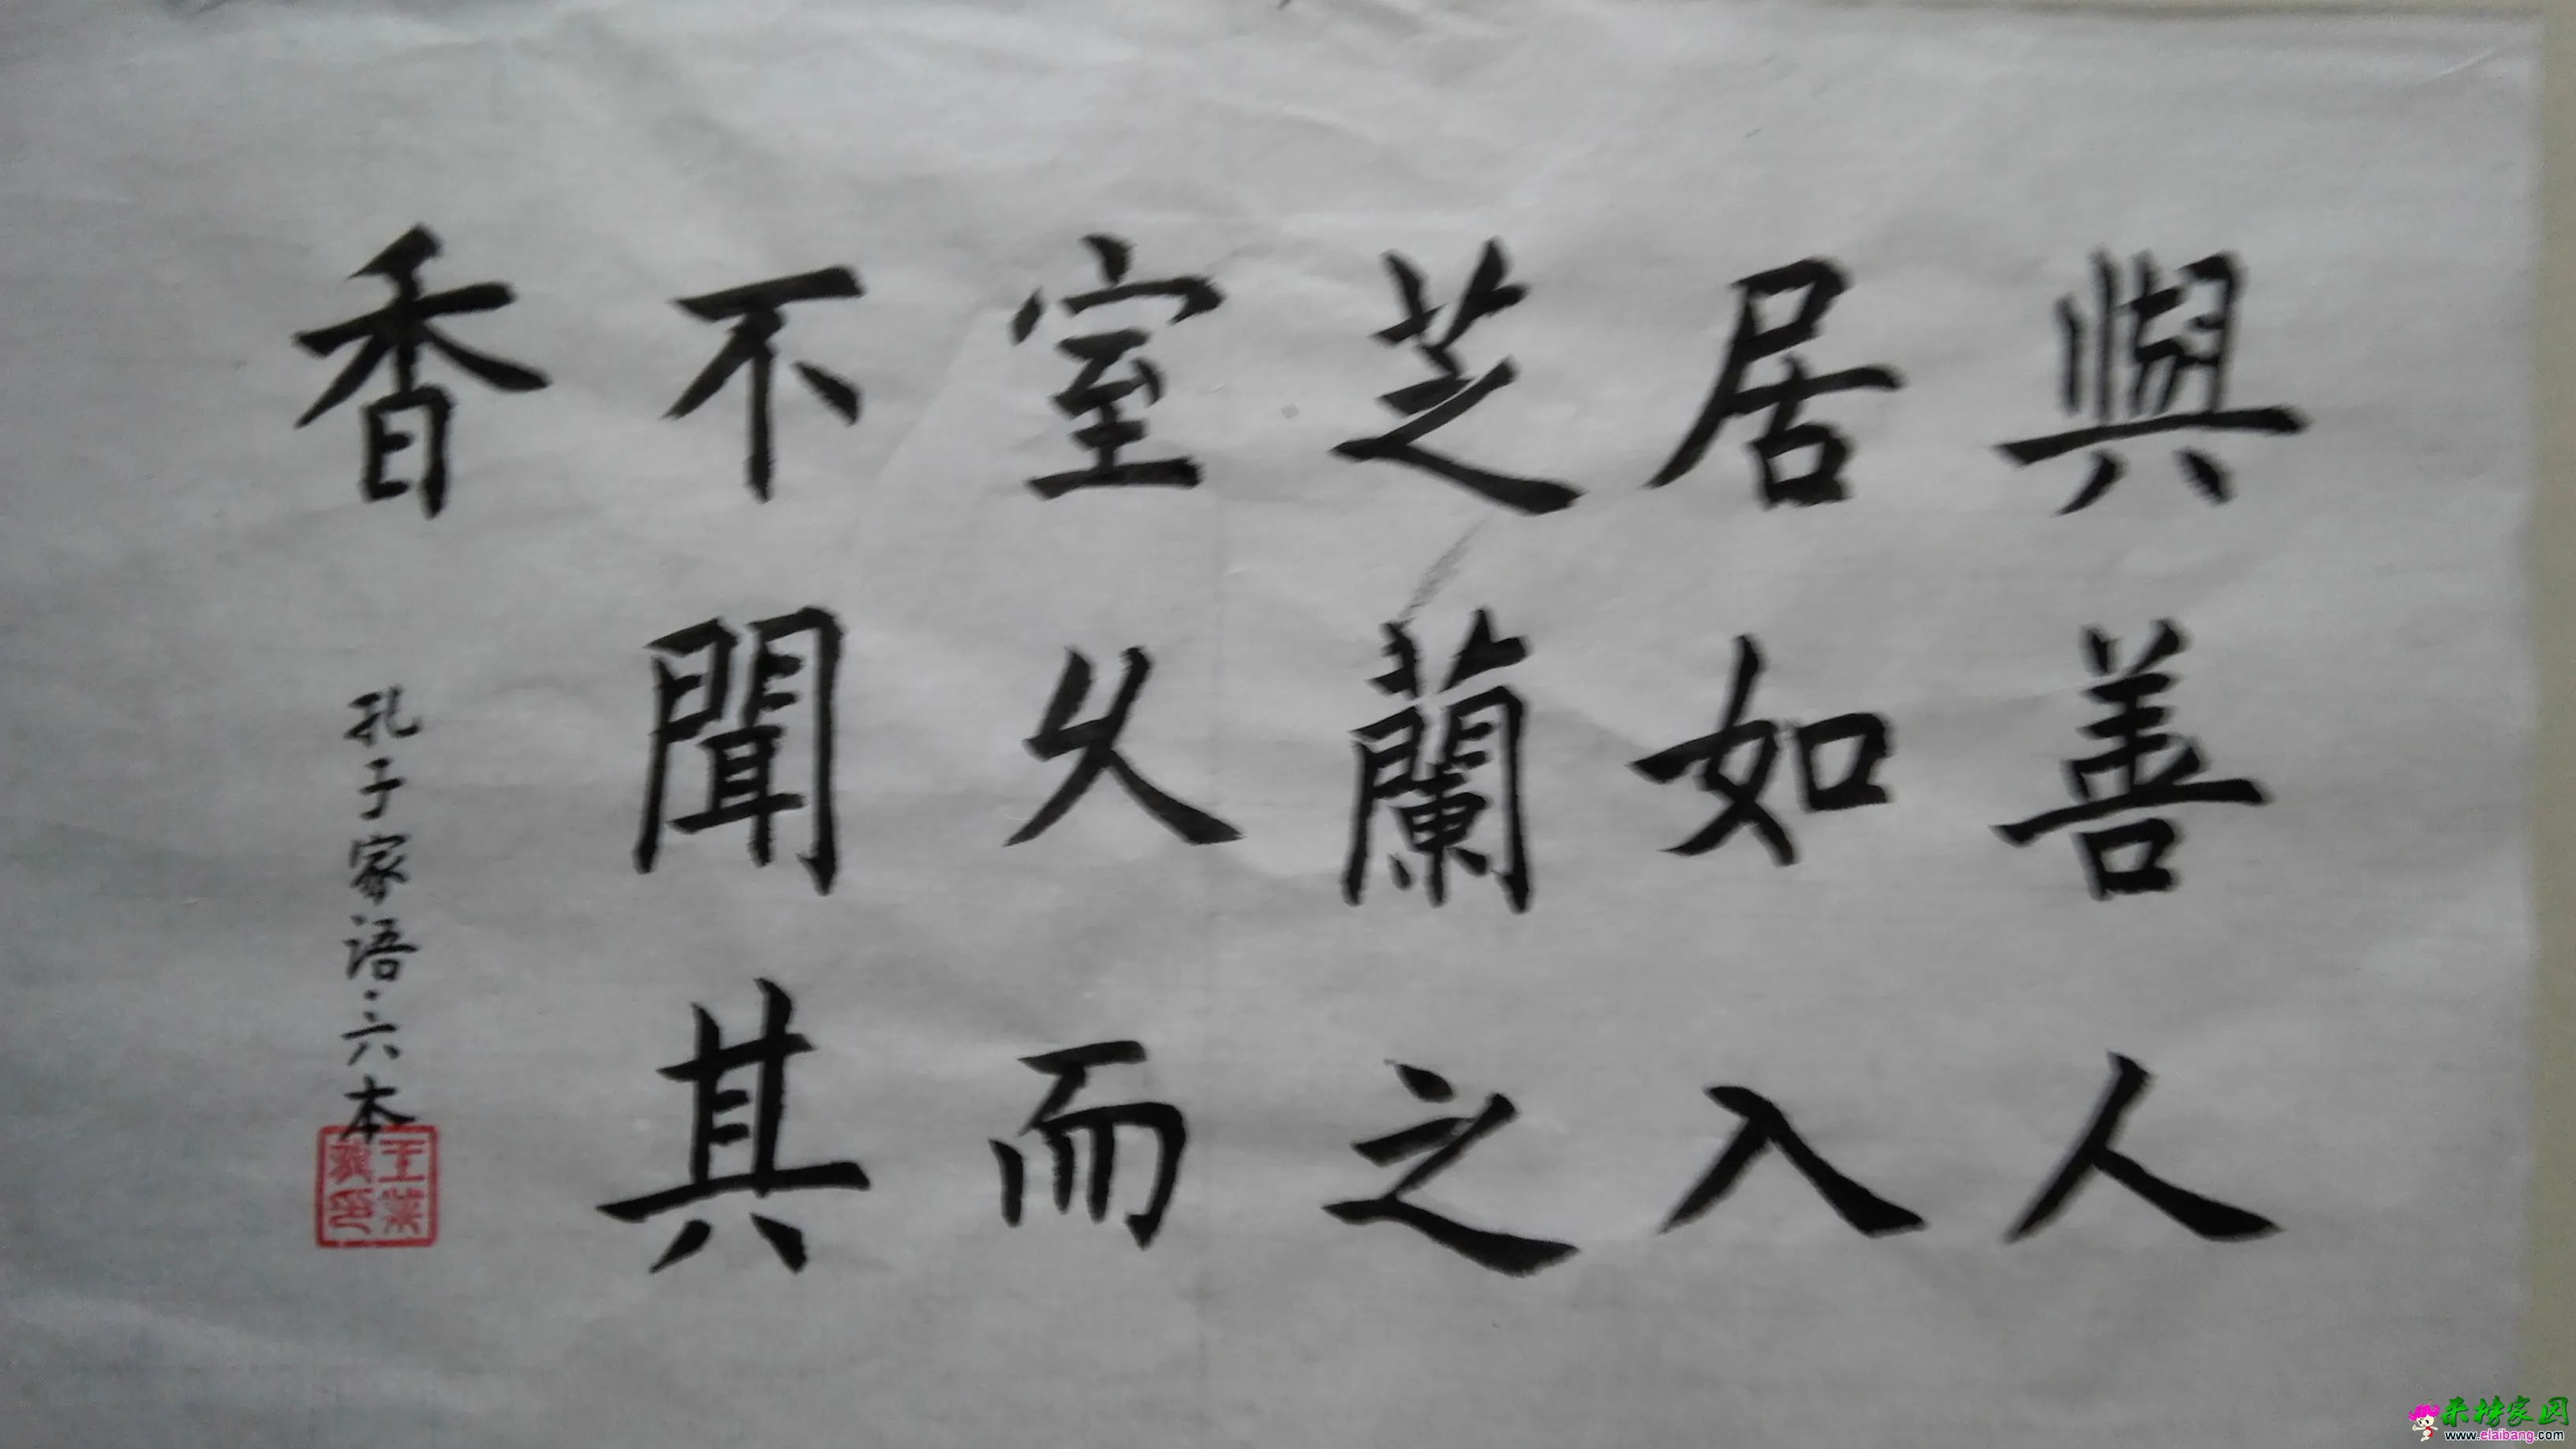 與善人
居如入
芝蘭之
室久而
不聞其
香
孔子家语·六本
来榜家园
www.elaibang.com